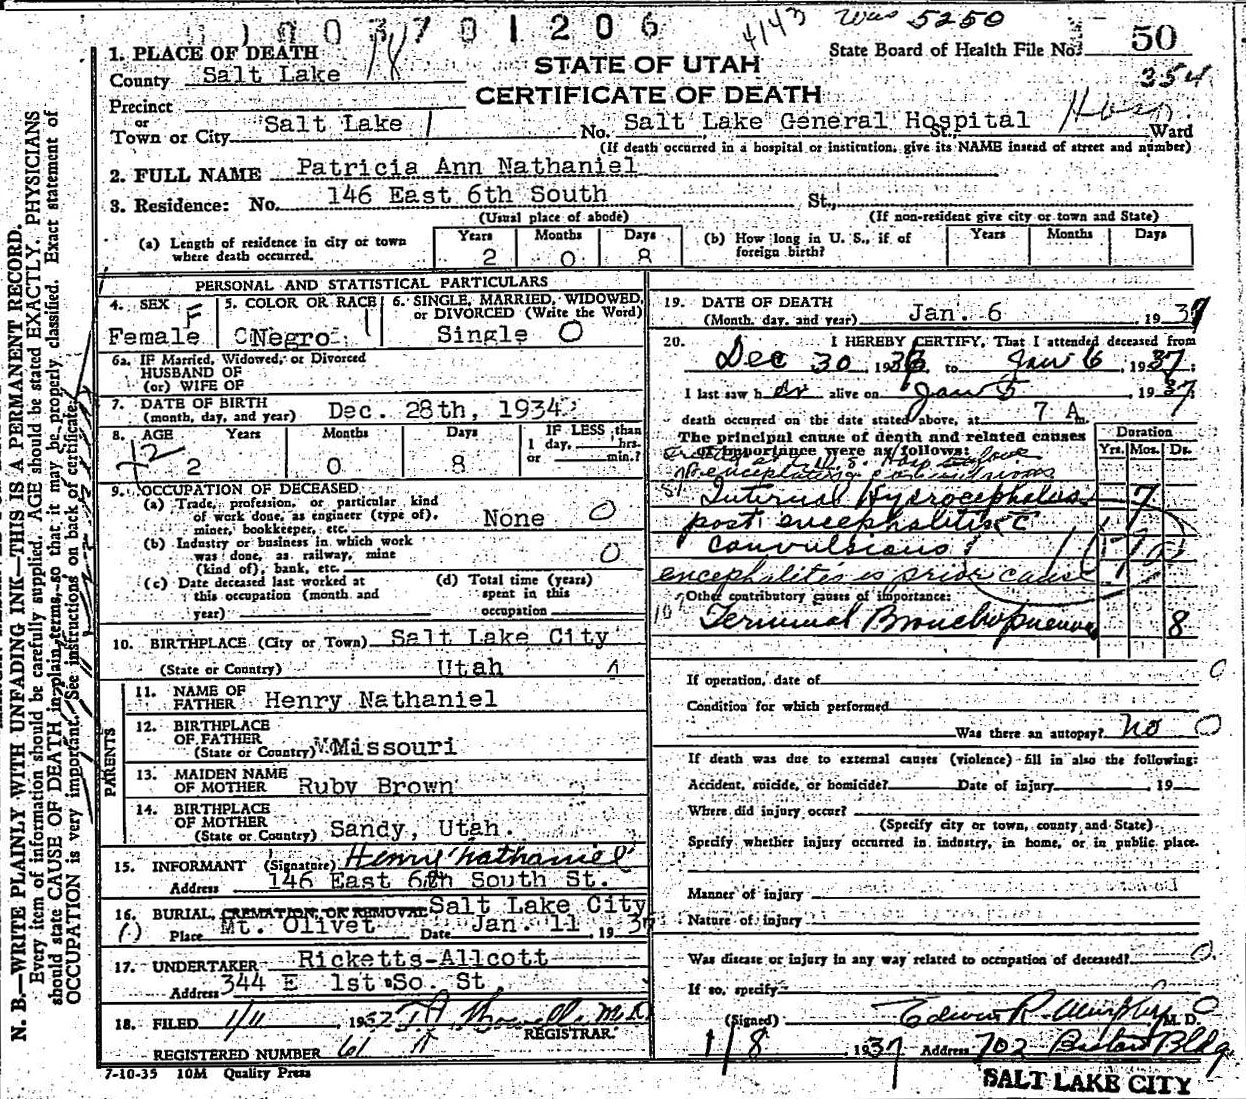 1003701206
4143 Was 5250
1. PLACE OF DEATH
State Board of Health File No. 50
County Salt Lake
STATE OF UTAH
354
CERTIFICATE OF DEATH
Precinct
or
Town or City Salt Lake 1 No. Salt Lake General Hospital St., Ward
(If death occurred in a hospital or institution, give its NAME instead of street and number)
2. FULL NAME Patricia Ann Nathaniel
3. Residence: No. 146 East 6th South St.,
(Usual place of abode) (If non-resident give city or town and State)
(a) Length of residence in city or town where death occurred. Years 2 Months 0 Days 8
(b) How long in U. S., if of foreign birth? Years Months Days
PERSONAL AND STATISTICAL PARTICULARS
4. SEX F Female
5. COLOR OR RACE Negro 1
6. SINGLE, MARRIED, WIDOWED, or DIVORCED (Write the Word) Single O
6a. IF Married, Widowed, or Divorced
HUSBAND OF
(or) WIFE OF
7. DATE OF BIRTH
(month, day, and year) Dec. 28th, 1934
8. AGE Years 2 Months 0 Days 8 IF LESS than 1 day, hrs. or min.?
12
9. OCCUPATION OF DECEASED
(a) Trade, profession, or particular kind of work done, as engineer (type of), miner, bookkeeper, etc. None O
(b) Industry or business in which work was done, as railway, mine (kind of), bank, etc. O
(c) Date deceased last worked at this occupation (month and year)
(d) Total time (years) spent in this occupation
10. BIRTHPLACE (City or Town) Salt Lake City
(State or Country) Utah
PARENTS
11. NAME OF FATHER Henry Nathaniel
12. BIRTHPLACE OF FATHER
(State or Country) Missouri
13. MAIDEN NAME OF MOTHER Ruby Brown
14. BIRTHPLACE OF MOTHER
(State or Country) Sandy, Utah.
15. INFORMANT (Signature) Henry Nathaniel
Address 146 East 6th South St.
16. BURIAL, CREMATION, OR REMOVAL Salt Lake City
Place Mt. Olivet Date Jan. 11, 193
17. UNDERTAKER Ricketts-Allcott
Address 344 E 1st So. St.
18. FILED 1/11 1937 M D
REGISTRAR.
REGISTERED NUMBER 61
7-10-35 10M Quality Press
19. DATE OF DEATH
(Month, day, and year) Jan. 6 1937
20. I HEREBY CERTIFY, That I attended deceased from
Dec 30 1936, to Jan 6, 1937;
I last saw her alive on Jan 5, 1937,
death occurred on the date stated above, at 7 A m.
The principal cause of death and related causes of importance were as follows:
Duration
Yrs. Mos. Ds.
Internal Hydrocephalus 7
post encephalitis c̄
convulsions
encephalitis is prior cause
Other contributory causes of importance:
Terminal Bronchopneumo 8
If operation, date of
Condition for which performed
Was there an autopsy? No O
If death was due to external causes (violence) fill in also the following:
Accident, suicide, or homicide? Date of injury 19
Where did injury occur?
(Specify city or town, county and State)
Specify whether injury occurred in industry, in home, or in public place.
Manner of injury
Nature of injury
Was disease or injury in any way related to occupation of deceased? O
If so, specify
(Signed) Edwin R. Murphy M. D.
1/8, 1937 Address 702 Boston Bldg.
SALT LAKE CITY
N. B.—WRITE PLAINLY WITH UNFADING INK—THIS IS A PERMANENT RECORD.
Every item of information should be carefully supplied. AGE should be stated EXACTLY. PHYSICIANS
should state CAUSE OF DEATH in plain terms, so that it may be properly classified. Exact statement of
OCCUPATION is very important. See instructions on back of certificate.